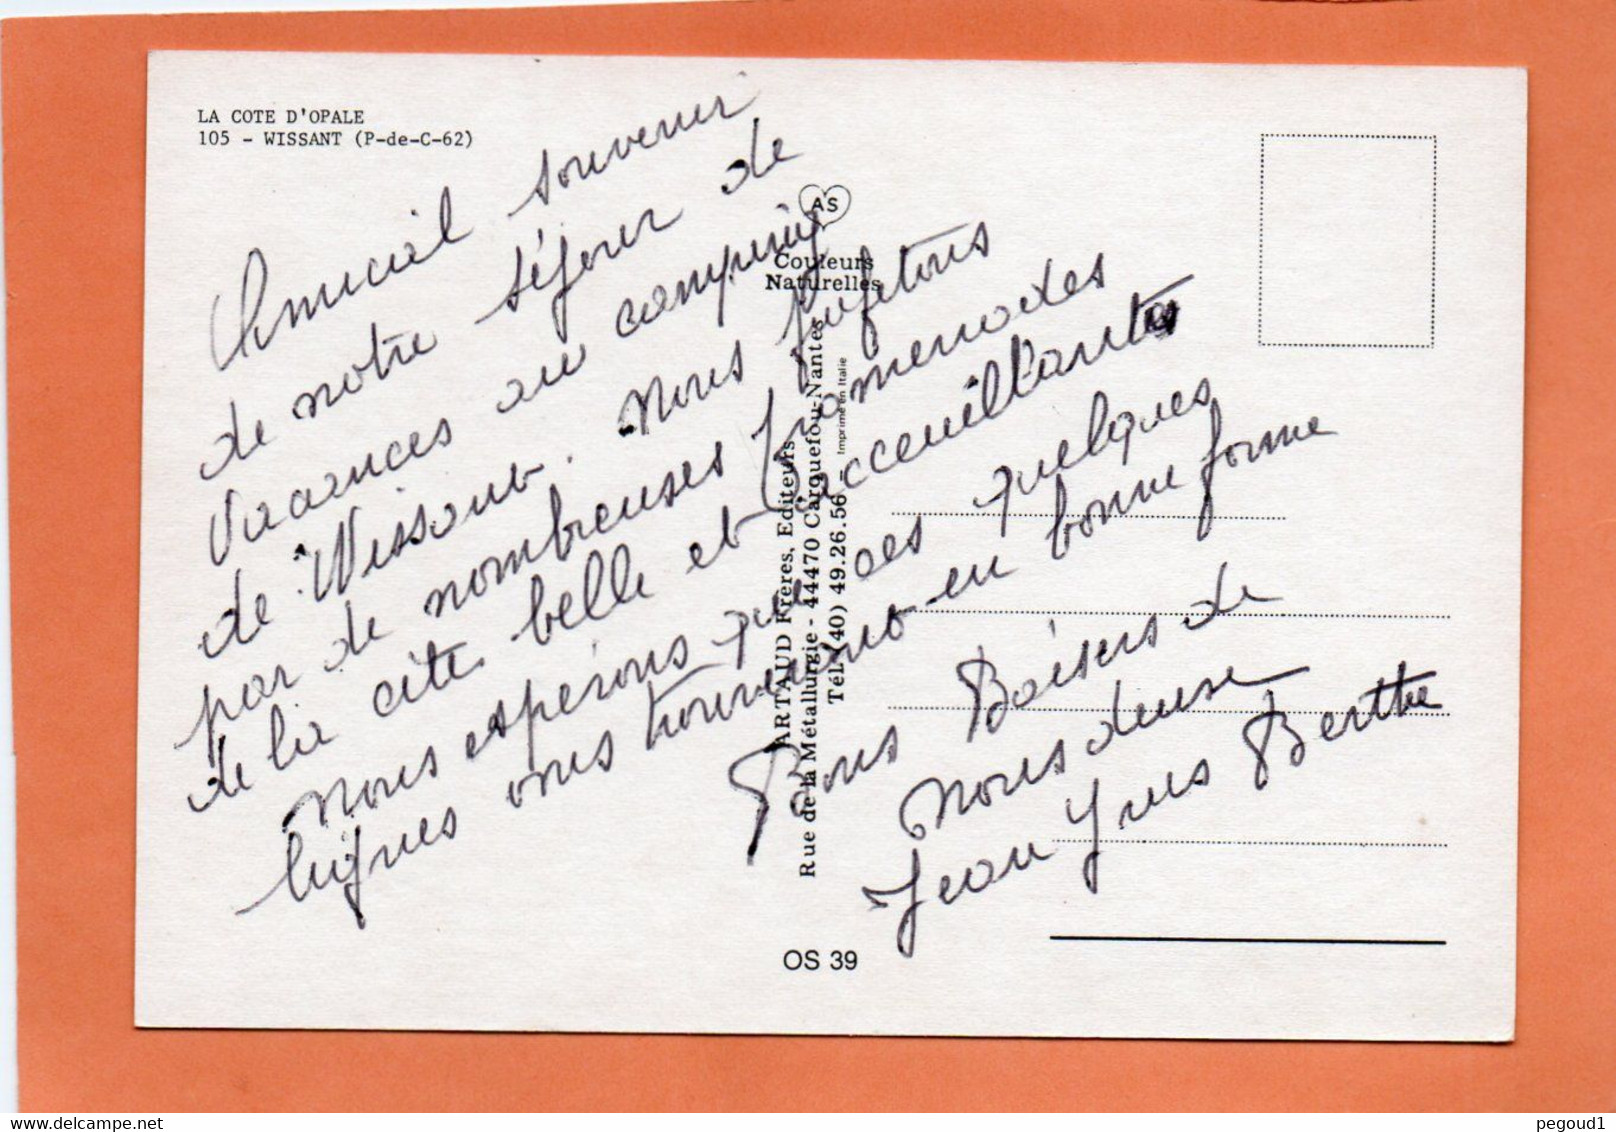 LA COTE D'OPALE
105 - WISSANT (P-de-C-62)
Amical souvenir
de notre séjour de
vacances au camping
de Wissant. Nous profitons
par de nombreuses promenades
de la cité belle et acceuillante
Nous espérons que ces quelques
lignes vous trouveront en bonne forme
Bons Baisers de
Nous deux
Jean Yves Berthe
AS
Couleurs
Naturelles
ARTAUD Frères, Editeurs
Rue de la Métallurgie - 44470 Carquefou-Nantes
Tél. (40) 49.26.56 - Imprimé en Italie
OS 39
pegoud1